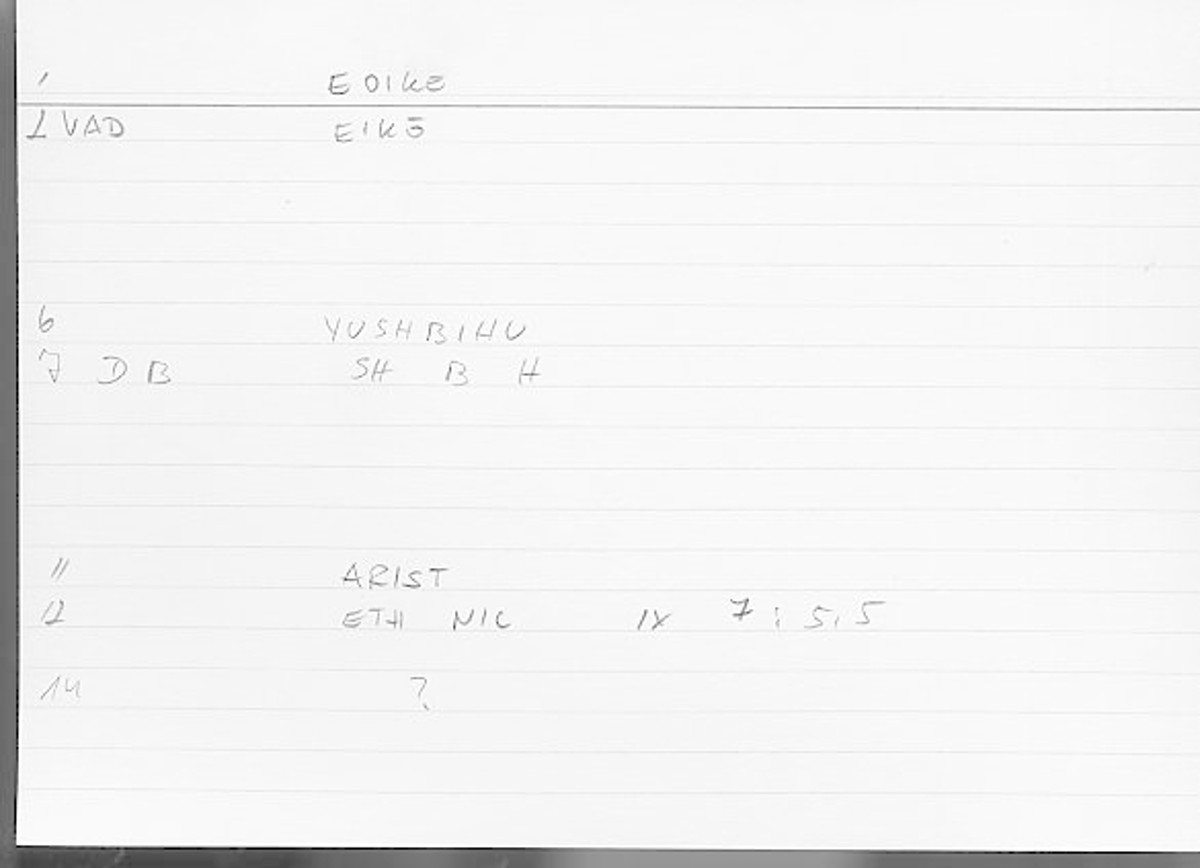 1 EOIKE
2 VAD EIKŌ
6 YUSHBIHU
7 DB SH B H
11 ARIST
12 ETH NIC IX 7 : 5,5
14 ?